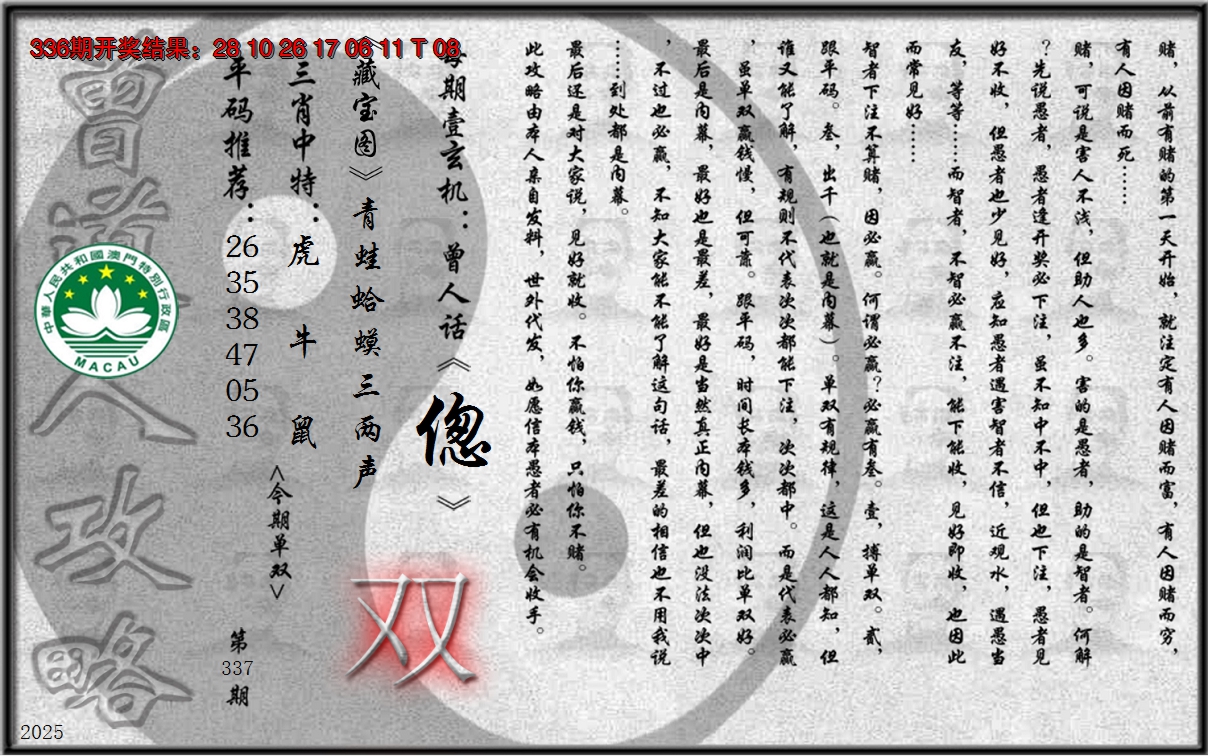 336期开奖结果：28 10 26 17 06 11 T 08
赌，从前有赌的第一天开始，就注定有人因赌而富，有人因赌而穷，
有人因赌而死……
赌，可说是害人不浅，但助人也多。害的是愚者，助的是智者。何解
？先说愚者，愚者逢开奖必下注，虽不知中不中，但也下注，愚者见
好不收，但愚者也少见好，应知愚者遇害智者不信，近观水，遇愚当
友，等等……而智者，不智必赢不注，能下能收，见好即收，也因此
而常见好……
智者下注不算赌，因必赢。何谓必赢？必赢有叁。壹，搏单双。贰，
跟平码。叁，出千（也就是内幕）。单双有规律，这是人人都知，但
谁又能了解，有规则不代表次次都能下注，次次都中。而是代表必赢
，虽单双赢钱慢，但可靠。跟平码，时间长本钱多，利润比单双好。
最后是内幕，最好也是最差，最好是当然真正内幕，但也没法次次中
，不过也必赢，不知大家能不能了解这句话，最差的相信也不用我说
……到处都是内幕。
最后还是对大家说，见好就收。不怕你赢钱，只怕你不赌。
此攻略由本人亲自发料，世外代发，如愿信本愚者必有机会收手。
每期壹玄机：曾人话《偬》
《藏宝图》青蛙蛤蟆三两声
双
三肖中特：虎 牛 鼠
<今期单双>
平码推荐：
26
35
38
47
05
36
第
337
期
曾道人攻略
中華人民共和國澳門特別行政區
MACAU
2025